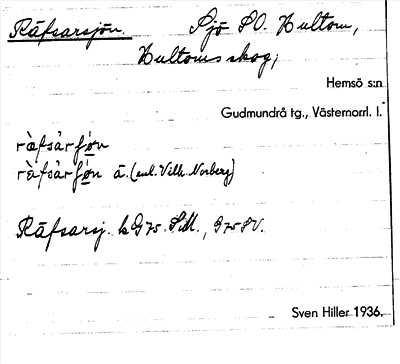 Räfsarsjön. Sjö SO. Hultom,
Hultoms skog,
Hemsö s:n
Gudmundrå tg., Västernorrl. l.
ràfsàrʃø̀n
ràfsàrʃø̀n ä. (enl. Vilh. Norberg)
Räfsarsj. k G75 S.M., 975 SV.
Sven Hiller 1936.